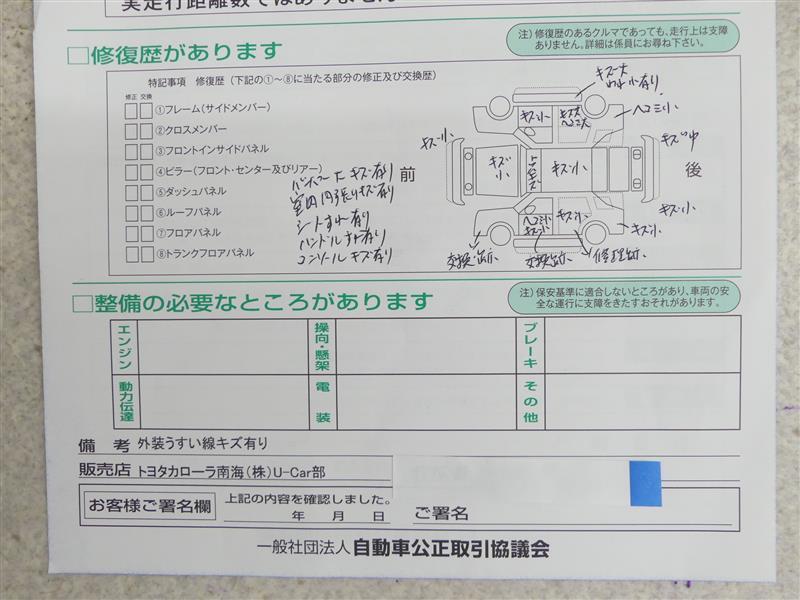 □修復歴があります
注）修復歴のあるクルマであっても、走行上は支障
ありません。詳細は係員にお尋ね下さい。
特記事項 修復歴（下記の①～⑧に当たる部分の修正及び交換歴）
修正 交換
①フレーム（サイドメンバー）
②クロスメンバー
③フロントインサイドパネル
④ピラー（フロント・センター及びリアー）
⑤ダッシュパネル
⑥ルーフパネル
⑦フロアパネル
⑧トランクフロアパネル
キズ有り
室内内張りキズ有り
シートすれ有り
ハンドルすれ有り
コンソールキズ有り
前
後
キズ大
ヘコミ小
キズ小
キズ中
キズ小
キズ大
ヘコミ大
キズ小
キズ小
キズ小
キズ小
キズ小
ヘコミ小
キズ小
キズ小
交換跡
交換跡
修理跡
□整備の必要なところがあります
注）保安基準に適合しないところがあり、車両の安
全な運行に支障をきたすおそれがあります。
エンジン
操向・懸架
ブレーキ
動力伝達
電装
その他
備考 外装うすい線キズ有り
販売店 トヨタカローラ南海（株）U-Car部
お客様ご署名欄
上記の内容を確認しました。
年 月 日
ご署名
一般社団法人 自動車公正取引協議会